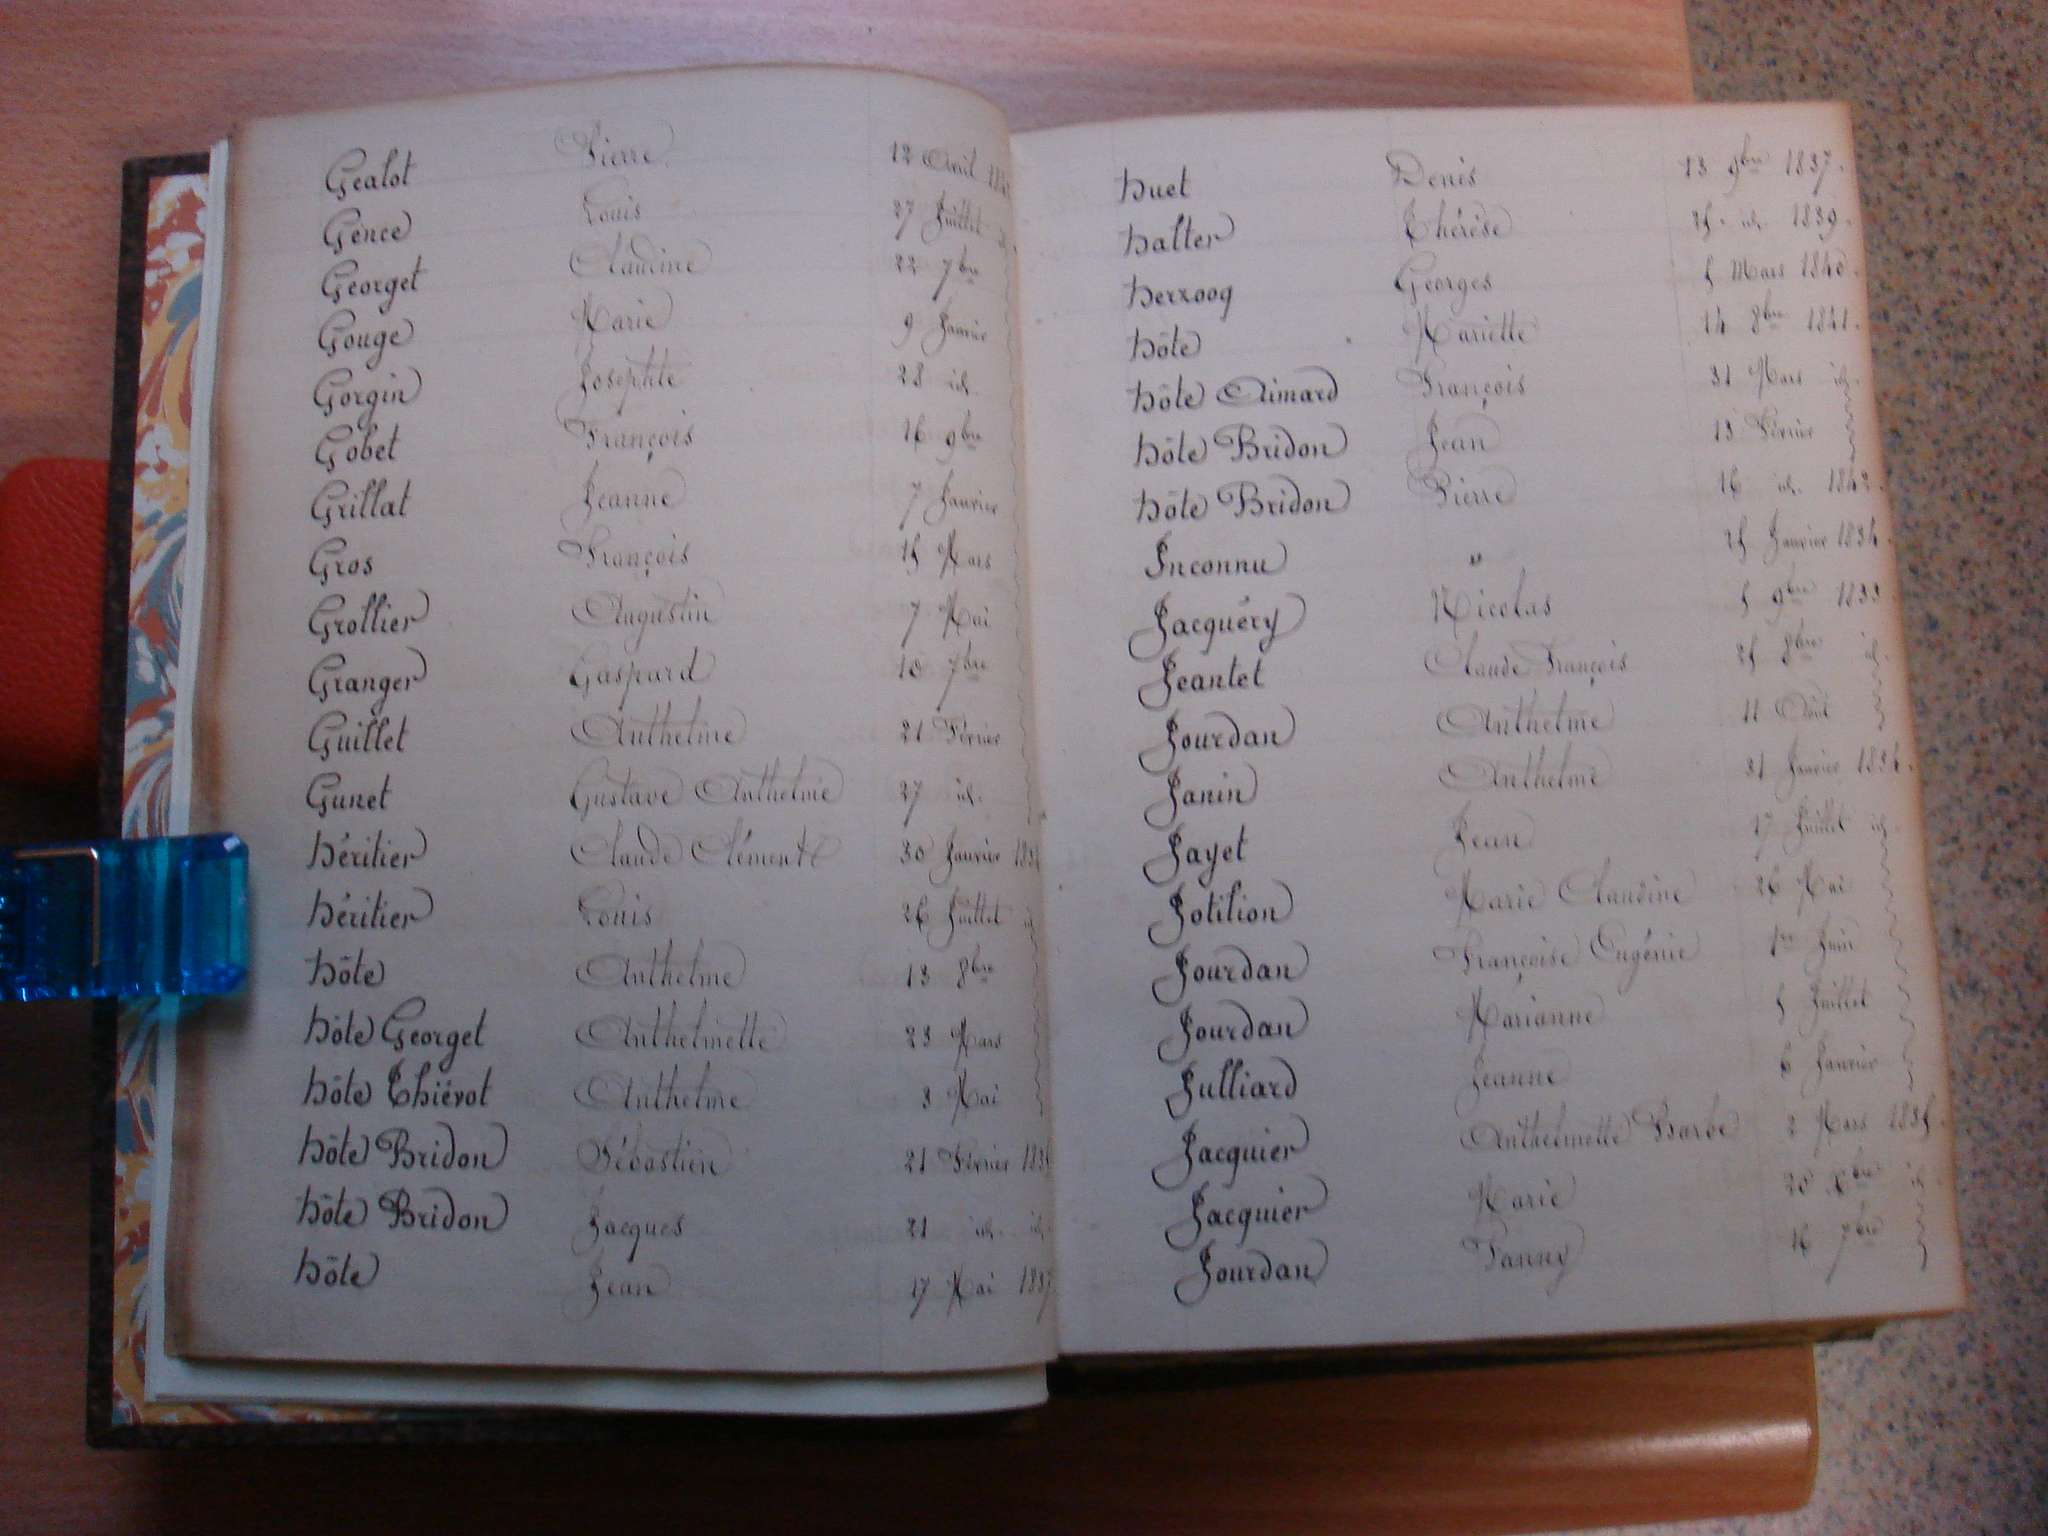 Gealot Pierre 12 Avril
Gence Louis 27 Juillet
Georget Claudine 22 7bre
Gouge Marie 9 Janvier
Gorgin Josephte 28 id.
Gobet François 16 9bre
Grillat Jeanne 7 Janvier
Gros François 15 Mars
Grollier Augustin 7 Mai
Granger Gaspard 10 7bre
Guillet Anthelme 21 Février
Gunet Gustave Anthelme 27 id.
Héritier Claude Clément 30 Janvier
Héritier Louis 26 Juillet
Hôte Anthelme 13 8bre
Hôte Georget Anthelmette 23 Mars
Hôte Thiévot Anthelme 3 Mai
Hôte Bridon Sébastien 21 Février
Hôte Bridon Jacques 21 id. id.
Hôte Jean 17 Mai 1837
Huet Denis 13 9bre 1837.
Halter Thérèse 25. id. 1839.
Herzoog Georges 5 Mars 1840.
Hôte Mariette 14 8bre 1841.
Hôte Aimard François 31 Mars id.
Hôte Bridon Jean 13 Février
Hôte Bridon Pierre 16 id. 1842.
Inconnu " 25 Janvier 1834.
Jacquéry Nicolas 5 9bre 1833
Jeantet Claude François 25 8bre id.
Jourdan Anthelme 11 Avril
Janin Anthelme 31 Janvier 1834.
Jayet Jean 17 Juillet id.
Jotilion Marie Claudine 26 Mai
Jourdan Françoise Eugénie 1er Juin
Jourdan Marianne 5 Juillet
Julliard Jeanne 6 Janvier
Jacquier Anthelmette Barbe 2 Mars 1835.
Jacquier Marie 20 Xbre id.
Jourdan Fanny 16 7bre